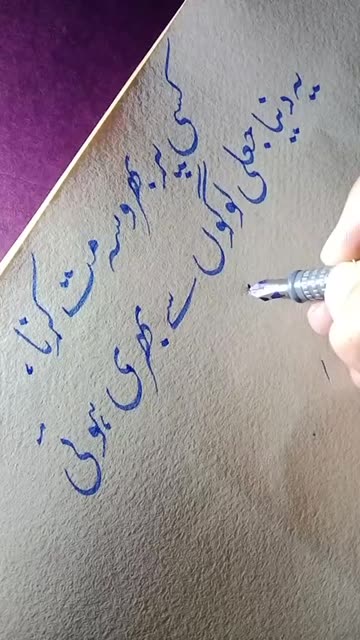 کسی پر بھروسہ مت کرنا،
یہ دنیا جعلی لوگوں سے بھری ہوئی